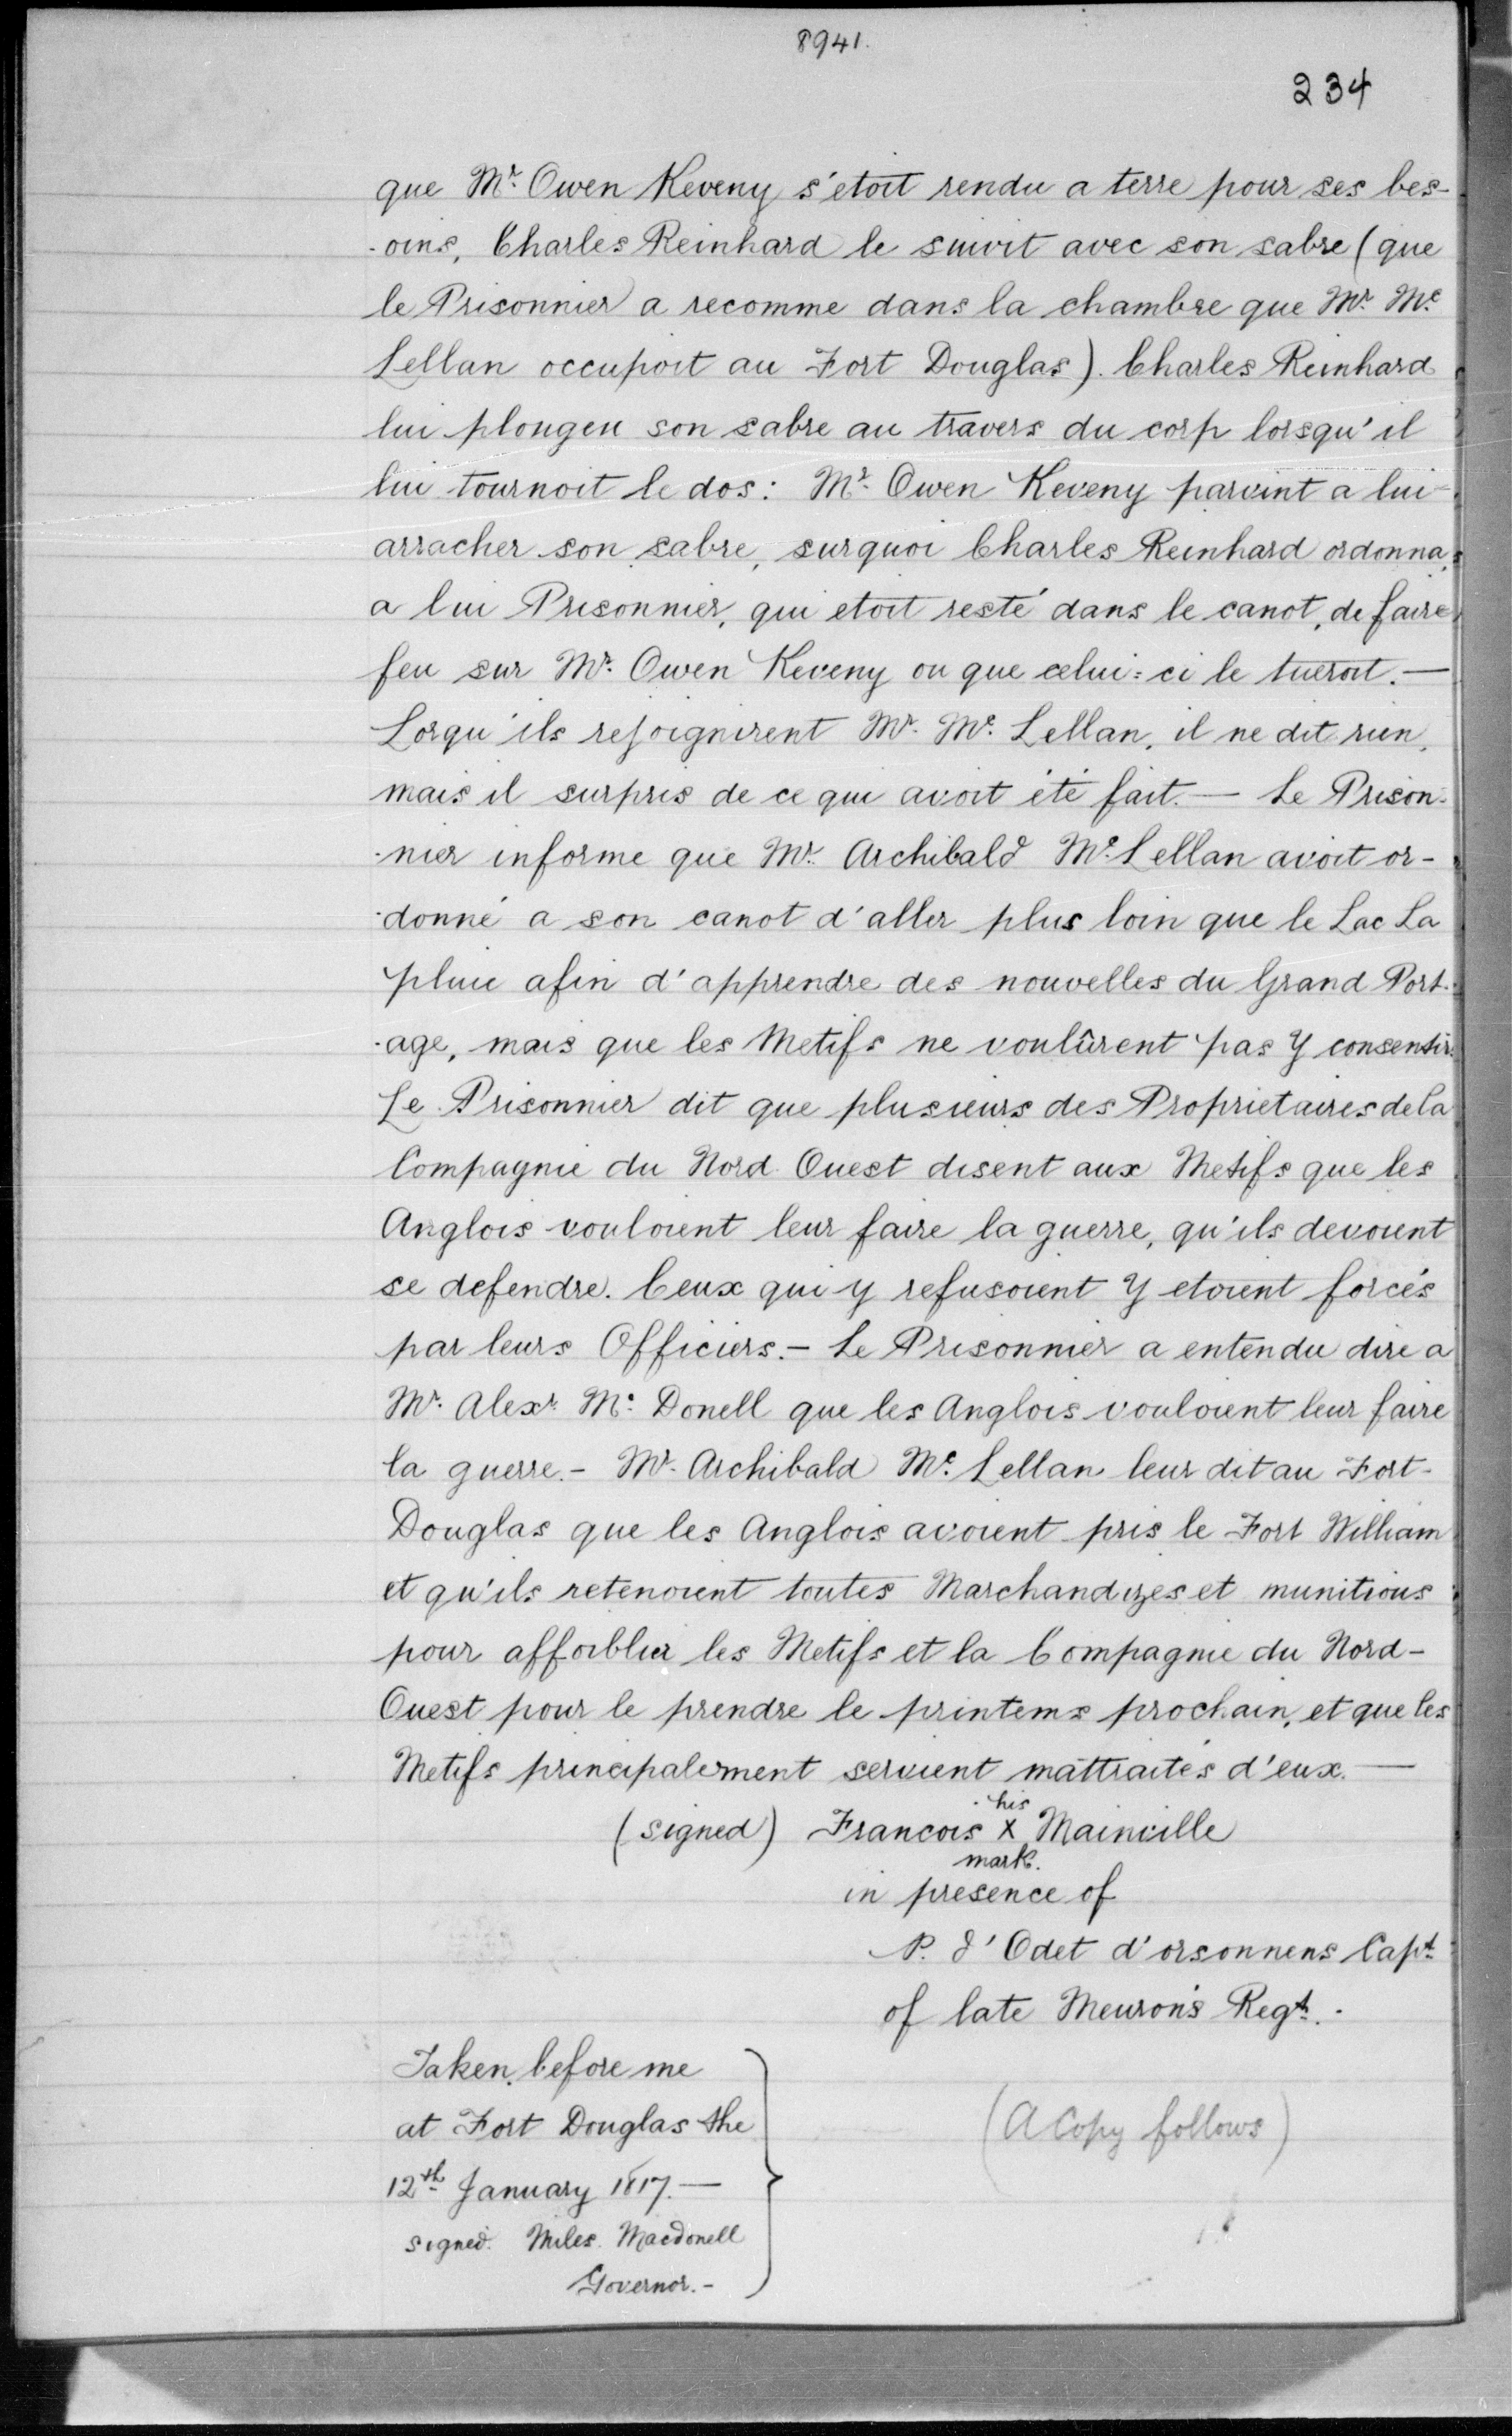 8941.
234
que Mr. Owen Keveny s'etoit rendu a terre pour ses bes-
-oins, Charles Reinhard le suivit avec son sabre (que
le Prisonnier a recomme dans la chambre que Mr. Mc.
Lellan occupoit au Fort Douglas). Charles Reinhard
lui plongeu son sabre au travers du corp lorsqu'il
lui tournoit le dos: Mr. Owen Keveny parvint a lui-
arracher son sabre, surquoi Charles Reinhard ordonna,
a lui Prisonnier, qui etoit resté dans le canot, de faire
feu sur Mr. Owen Keveny ou que celui=ci le tueroit.—
Lorqu'ils rejoignirent Mr. Mc. Lellan, il ne dit rien,
mais il surpris de ce qui avoit été fait.— Le Prison-
-nier informe que Mr. Archibald Mc. Lellan avoit or-
-donné a son canot d'aller plus loin que le Lac La
pluie afin d'apprendre des nouvelles du Grand Port-
-age, mais que les Metifs ne voulûrent pas y consentir.
Le Prisonnier dit que plusieurs des Proprietaires de la
Compagnie du Nord Ouest disent aux Metifs que les
Anglois vouloient leur faire la guerre, qu'ils devoient
se defendre. Ceux qui y refusoient y etoient forcés
par leurs Officiers.- Le Prisonnier a entendu dire a
Mr. Alexr. Mc. Donell que les Anglois vouloient leur faire
la guerre.- Mr. Archibald Mc. Lellan leur dit au Fort-
Douglas que les Anglois avoient pris le Fort William
et qu'ils retenoient toutes Marchandizes et munitions
pour affoiblir les Metifs et la Compagnie du Nord-
Ouest pour le prendre le printems prochain, et que les
Metifs principalement seroient mattraités d'eux.—
his
(signed) Francois X Mainville
mark.
in presence of
P. d'Odet d'orsonnens Capt.
of late Meuron's Regt.
Taken before me
at Fort Douglas the
12th January 1817.—
signed. Miles Macdonell
Governor.-
(A Copy follows)